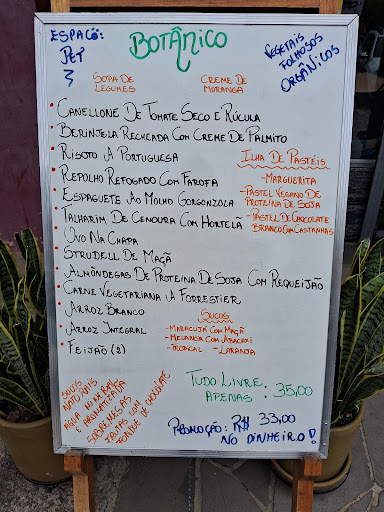 ESPAÇO:
PET
BOTÂNICO
VEGETAIS
FOLHOSOS
ORGÂNICOS
SOPA DE
LEGUMES
CREME DE
MORANGA
• CANELLONE DE TOMATE SECO E RÚCULA
• BERINJELA RECHEADA COM CREME DE PALMITO
• RISOTO À PORTUGUESA
• REPOLHO REFOGADO COM FAROFA
• ESPAGUETE AO MOLHO GORGONZOLA
• TALHARIM DE CENOURA COM HORTELÃ
• OVO NA CHAPA
• STRUDELL DE MAÇÃ
• ALMÔNDEGAS DE PROTEÍNA DE SOJA COM REQUEIJÃO
• CARNE VEGETARIANA À FORRESTIER
• ARROZ BRANCO
• ARROZ INTEGRAL
• FEIJÃO (2)
ILHA DE PASTÉIS
- MARGUERITA
- PASTEL VEGANO DE
PROTEÍNA DE SOJA
- PASTEL DE CHOCOLATE
BRANCO COM CASTANHAS
SUCOS
- MARACUJÁ COM MAÇÃ
- MELANCIA COM ABACAXI
- TROPICAL - LARANJA
SUCOS
NATURAIS
ÁGUA MINERAL
E AROMATIZADA
SOBREMESAS
FRUTAS COM
FONDUE DE CHOCOLATE
TUDO LIVRE,
APENAS: 35,00
PROMOÇÃO: R$ 33,00
NO DINHEIRO!